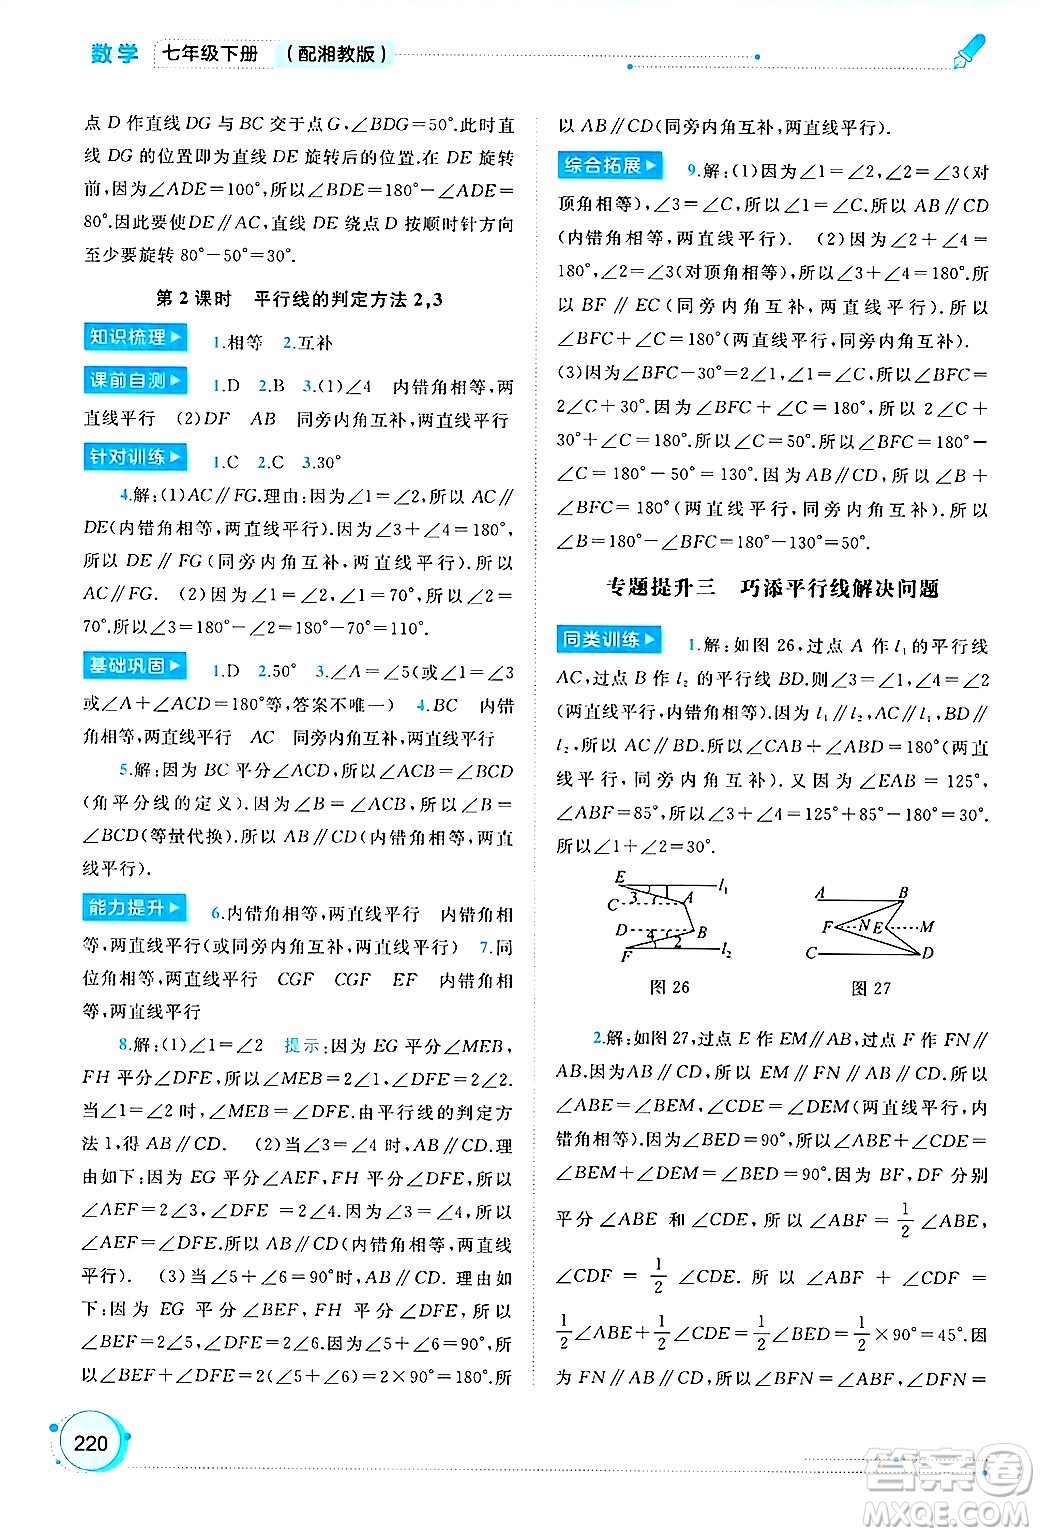 数学 七年级下册 （配湘教版）
点 D 作直线 DG 与 BC 交于点 G,∠BDG=50°.此时直
线 DG 的位置即为直线 DE 旋转后的位置.在 DE 旋转
前,因为∠ADE=100°,所以∠BDE=180°-∠ADE=
80°.因此要使DE∥AC,直线 DE 绕点 D 按顺时针方向
至少要旋转 80°-50°=30°.
第 2 课时 平行线的判定方法 2,3
知识梳理 1.相等 2.互补
课前自测 1.D 2.B 3.(1)∠4 内错角相等,两
直线平行 (2)DF AB 同旁内角互补,两直线平行
针对训练 1.C 2.C 3.30°
4.解:(1)AC∥FG.理由:因为∠1=∠2,所以 AC∥
DE(内错角相等,两直线平行).因为∠3+∠4=180°,
所以 DE∥FG(同旁内角互补,两直线平行).所以
AC∥FG. (2)因为∠1=∠2,∠1=70°,所以∠2=
70°.所以∠3=180°-∠2=180°-70°=110°.
基础巩固 1.D 2.50° 3.∠A=∠5(或∠1=∠3
或∠A+∠ACD=180°等,答案不唯一) 4.BC 内错
角相等,两直线平行 AC 同旁内角互补,两直线平行
5.解:因为 BC 平分∠ACD,所以∠ACB=∠BCD
(角平分线的定义).因为∠B=∠ACB,所以∠B=
∠BCD(等量代换).所以 AB∥CD(内错角相等,两直
线平行).
能力提升 6.内错角相等,两直线平行 内错角相
等,两直线平行(或同旁内角互补,两直线平行) 7.同
位角相等,两直线平行 CGF CGF EF 内错角相
等,两直线平行
8.解:(1)∠1=∠2 提示:因为 EG 平分∠MEB,
FH 平分∠DFE,所以∠MEB=2∠1,∠DFE=2∠2.
当∠1=∠2 时,∠MEB=∠DFE.由平行线的判定方
法 1,得 AB∥CD. (2)当∠3=∠4 时,AB∥CD.理
由如下:因为 EG 平分∠AEF,FH 平分∠DFE,所以
∠AEF=2∠3,∠DFE =2∠4.因为∠3=∠4,所以
∠AEF=∠DFE.所以 AB∥CD(内错角相等,两直线
平行). (3)当∠5+∠6=90°时,AB∥CD.理由如
下:因为 EG 平分∠BEF,FH 平分∠DFE,所以
∠BEF=2∠5,∠DFE=2∠6.因为∠5+∠6=90°,所
以∠BEF+∠DFE=2(∠5+∠6)=2×90°=180°.所
220
以 AB∥CD(同旁内角互补,两直线平行).
综合拓展 9.解:(1)因为∠1=∠2,∠2=∠3(对
顶角相等),∠3=∠C,所以∠1=∠C.所以 AB∥CD
(内错角相等,两直线平行). (2)因为∠2+∠4=
180°,∠2=∠3(对顶角相等),所以∠3+∠4=180°.所
以 BF∥EC(同旁内角互补,两直线平行).所以
∠BFC+∠C=180°(两直线平行,同旁内角互补).
(3)因为∠BFC-30°=2∠1=2∠C,所以∠BFC=
2∠C+30°.因为∠BFC+∠C=180°,所以 2∠C+
30°+∠C=180°.所以∠C=50°.所以∠BFC=180°-
∠C=180°-50°=130°.因为 AB∥CD,所以∠B+
∠BFC=180°(两直线平行,同旁内角互补).所以
∠B=180°-∠BFC=180°-130°=50°.
专题提升三 巧添平行线解决问题
同类训练 1.解:如图 26,过点 A 作 l₁的平行线
AC,过点 B 作 l₂ 的平行线 BD.则∠3=∠1,∠4=∠2
(两直线平行,内错角相等).因为 l₁∥l₂,AC∥l₁,BD∥
l₂,所以 AC∥BD.所以∠CAB+∠ABD=180°(两直
线平行,同旁内角互补).又因为∠EAB=125°,
∠ABF=85°,所以∠3+∠4=125°+85°-180°=30°.
所以∠1+∠2=30°.
E 1 l₁ C 3 A D B 4 2 F l₂
图 26
A B F N E M C D
图 27
2.解:如图 27,过点 E 作 EM∥AB,过点 F 作 FN∥
AB.因为 AB∥CD,所以 EM∥FN∥AB∥CD.所以
∠ABE=∠BEM,∠CDE=∠DEM(两直线平行,内
错角相等).因为∠BED=90°,所以∠ABE+∠CDE=
∠BEM+∠DEM=∠BED=90°.因为 BF,DF 分别
平分∠ABE 和∠CDE,所以∠ABF=1/2∠ABE,
∠CDF=1/2∠CDE.所以∠ABF+∠CDF=
1/2∠ABE+1/2∠CDE=1/2∠BED=1/2×90°=45°.因
为 FN∥AB∥CD,所以∠BFN=∠ABF,∠DFN=
答案圈
MXQE.COM